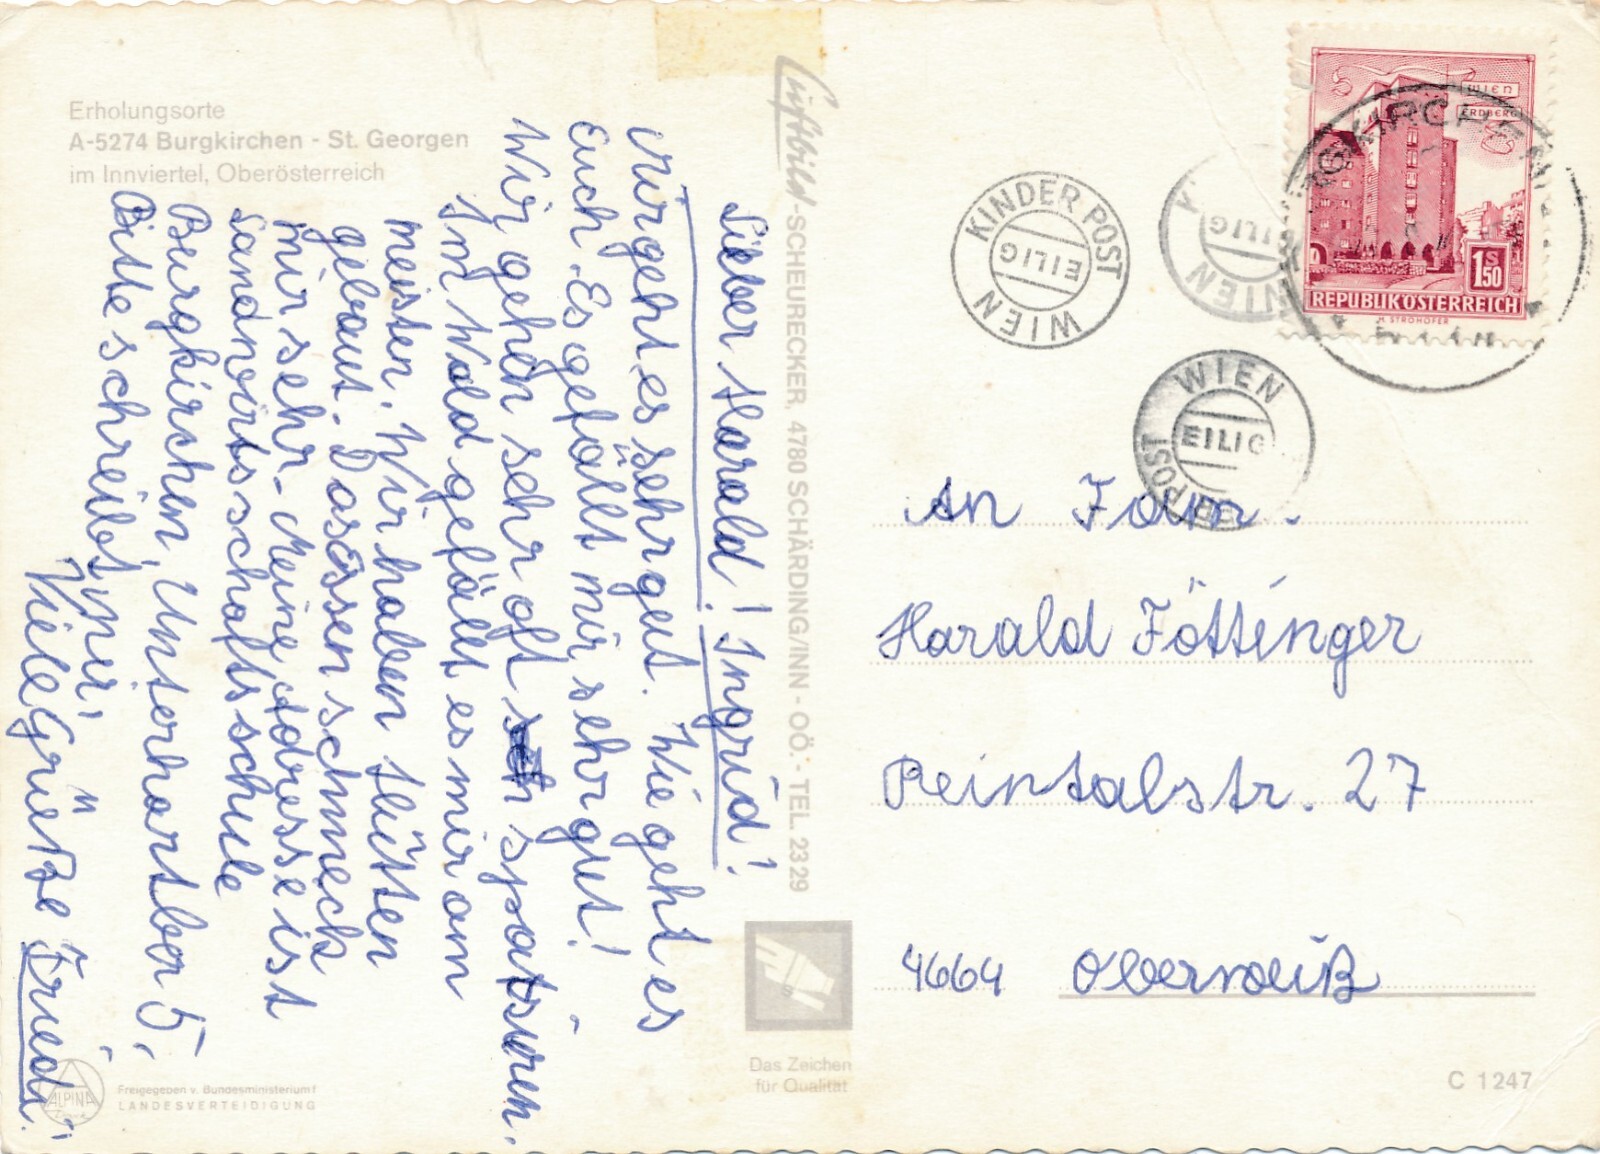 Erholungsorte
A-5274 Burgkirchen - St. Georgen
im Innviertel, Oberösterreich
Lieber Harald! Ingrid!
Mir geht es sehr gut. Wie geht es
Euch. Es gefällt mir sehr gut!
Wir gehen sehr oft spatsieren.
Im Wald gefällt es mir am
meisten. Wir haben Hütten
gebaut. Das Essen schmeck
mir sehr. Meine Adresse ist
Landwirtsschaftsschule
Burgkirchen, Unterhartberg 5,
Bitte schreibt mir!
Viele Grüße Friedi!
Luftbild-SCHEURECKER, 4780 SCHÄRDING/INN - OÖ. - TEL. 23 29
Das Zeichen
für Qualität
ALPINA
Freigegeben v. Bundesministerium f
LANDESVERTEIDIGUNG
WIEN
ERDBERG
1S50
REPUBLIK ÖSTERREICH
H. STROHOFER
KINDER POST
EILIG
WIEN
EILIG
WIEN
WIEN
EILIG
POST
An Fam.
Harald Föttinger
Reintalstr. 27
4664 Oberweiß
C 1247